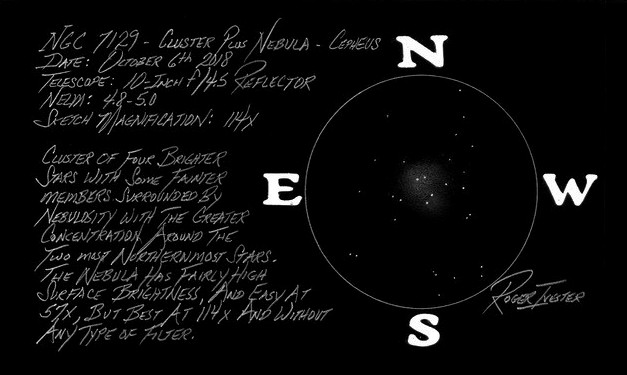 NGC 7129 - Cluster Plus Nebula - Cepheus
Date: October 6th 2018
Telescope: 10-Inch f/4.5 Reflector
NELM: 4.8-5.0
Sketch Magnification: 114x
Cluster of Four Brighter
Stars With Some Fainter
members Surrounded By
Nebulosity With The Greater
Concentration Around The
Two most Northernmost Stars.
The Nebula Has Fairly High
Surface Brightness, And Easy At
57x, But Best At 114x And Without
Any Type of Filter.
N
E
W
S
Roger Ivester